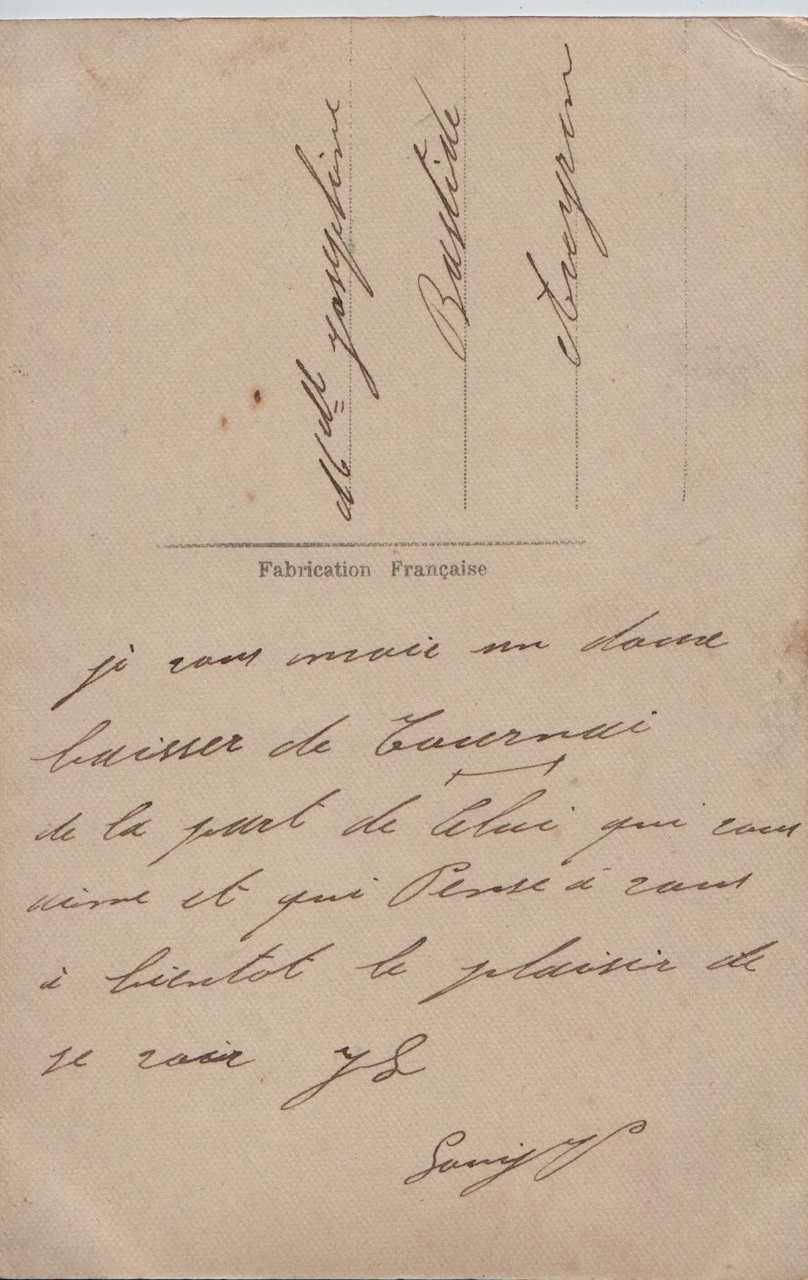 Mdlle Josephine
Bastide
Aveyron
Fabrication Française
je vous envoie un douse
baisser de Tournai
de la part de Celui qui vous
aime et qui Pense à vous
à bientot le plaisir de
se voir